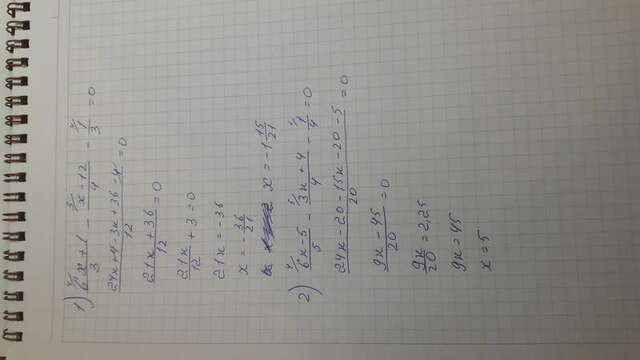 1) ⁴/6x+1/3 - ³/x-12/4 - ⁴/1/3 = 0
24x+4-3x+36-4/12 = 0
21x+36/12 = 0
21x/12 + 3 = 0
21x = -36
x = -36/21
x = -1 15/21
2) ⁴/6x-5/5 - ⁵/3x+4/4 - ⁵/1/4 = 0
24x-20-15x-20-5/20 = 0
9x-45/20 = 0
9x/20 = 2,25
9x = 45
x = 5